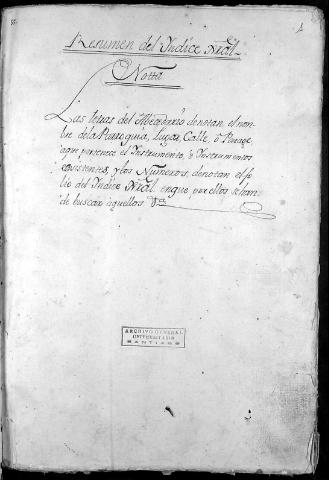 Resumen del Indice Nrâl
Notta
Las letras del Abecedario denotan el nom-
bre dela Parroquia, lugar, Calle, ò Parage
aque pertenece el Instrumento, ò Instrumentos
existentes, y los Numeros, denotan el fo-
lio del Indice Nrâl. enque por ellos sehan
de buscar aquellos
ARCHIVO GENERAL
UNIVERSITARIO
SANTIAGO